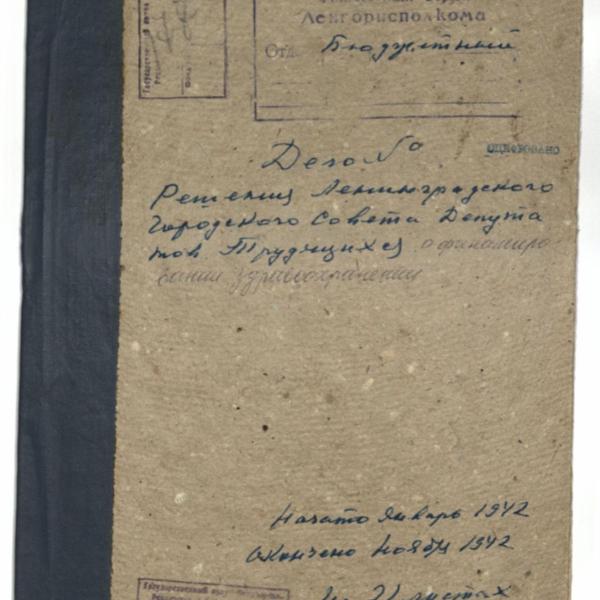 Ленгорисполкома
Отд. Бюджетный
ОЦИФРОВАНО
Дело №
Решения Ленинградского
Городского Совета Депута
тов Трудящихся о финансиро
вании здравоохранения
Начато Январь 1942
Окончено Ноябрь 1942
На листах
Государственный